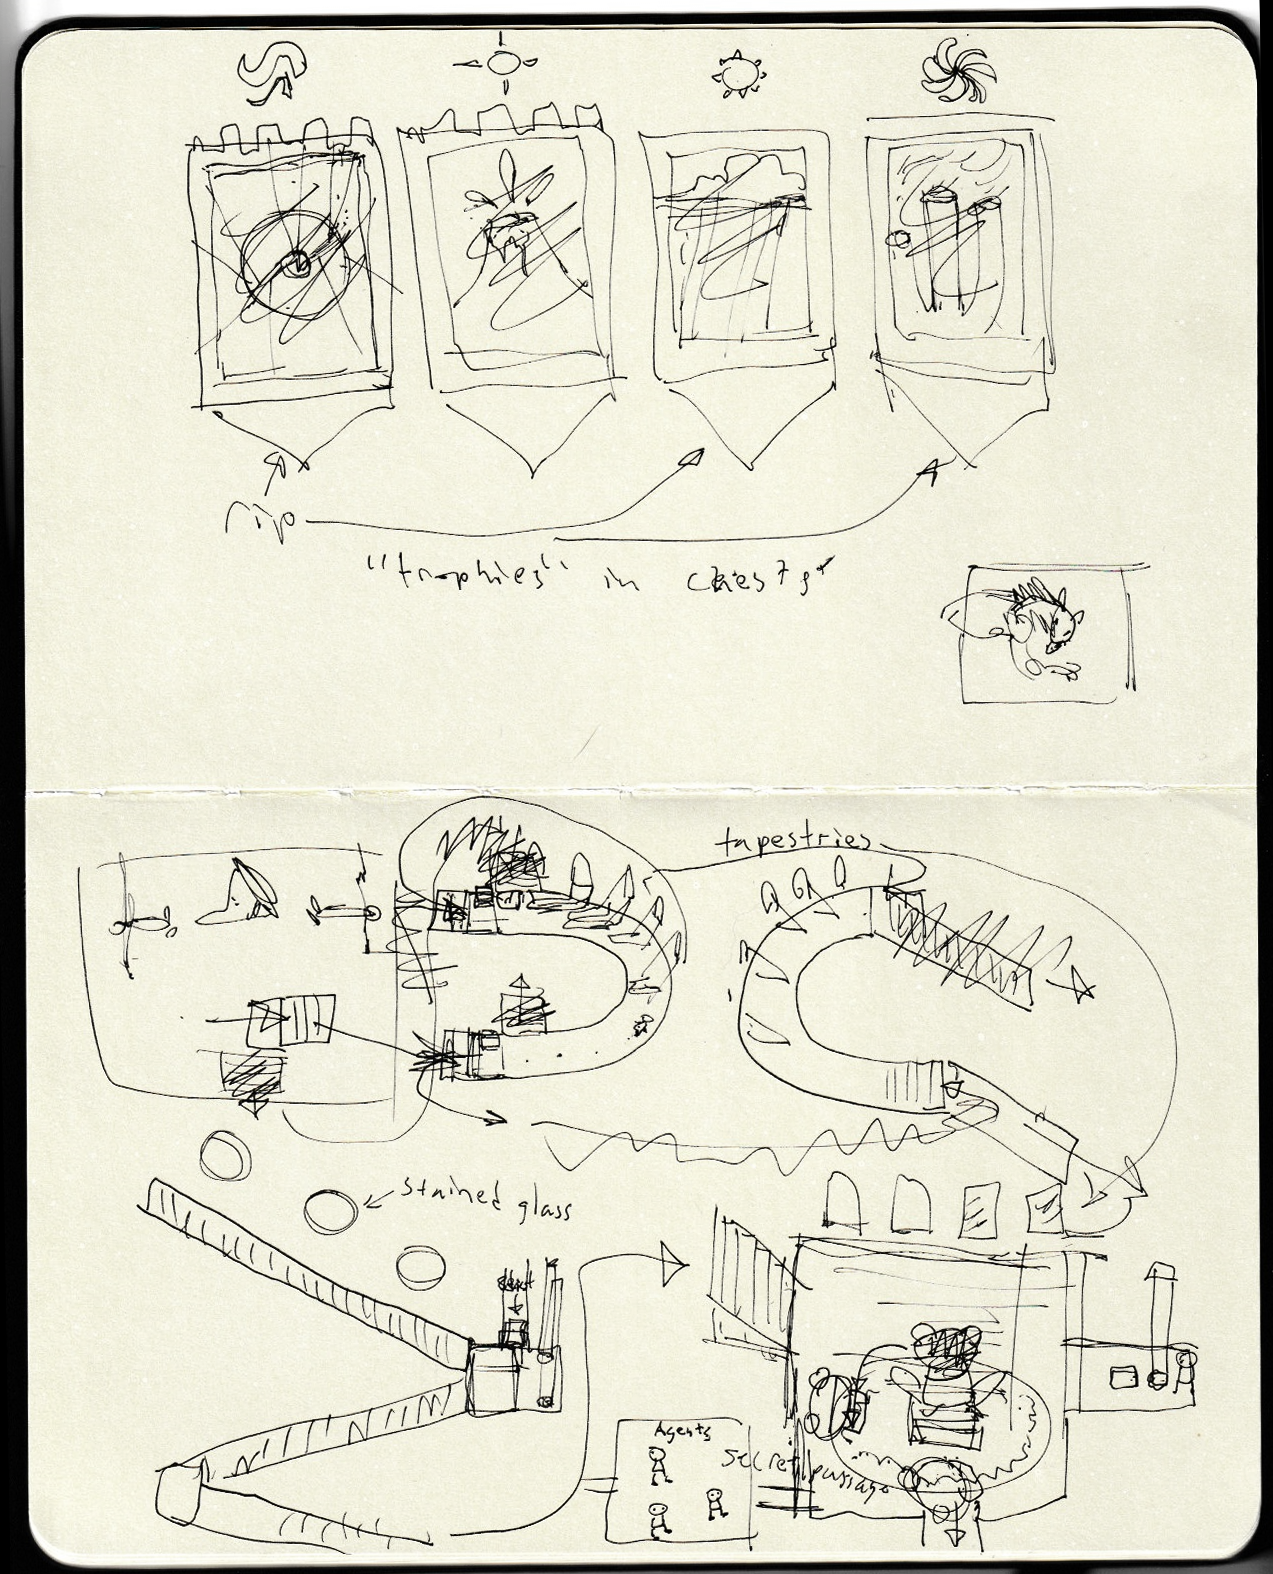 rip
"trophies" in chests
tapestries
stained glass
Agents
secret passage